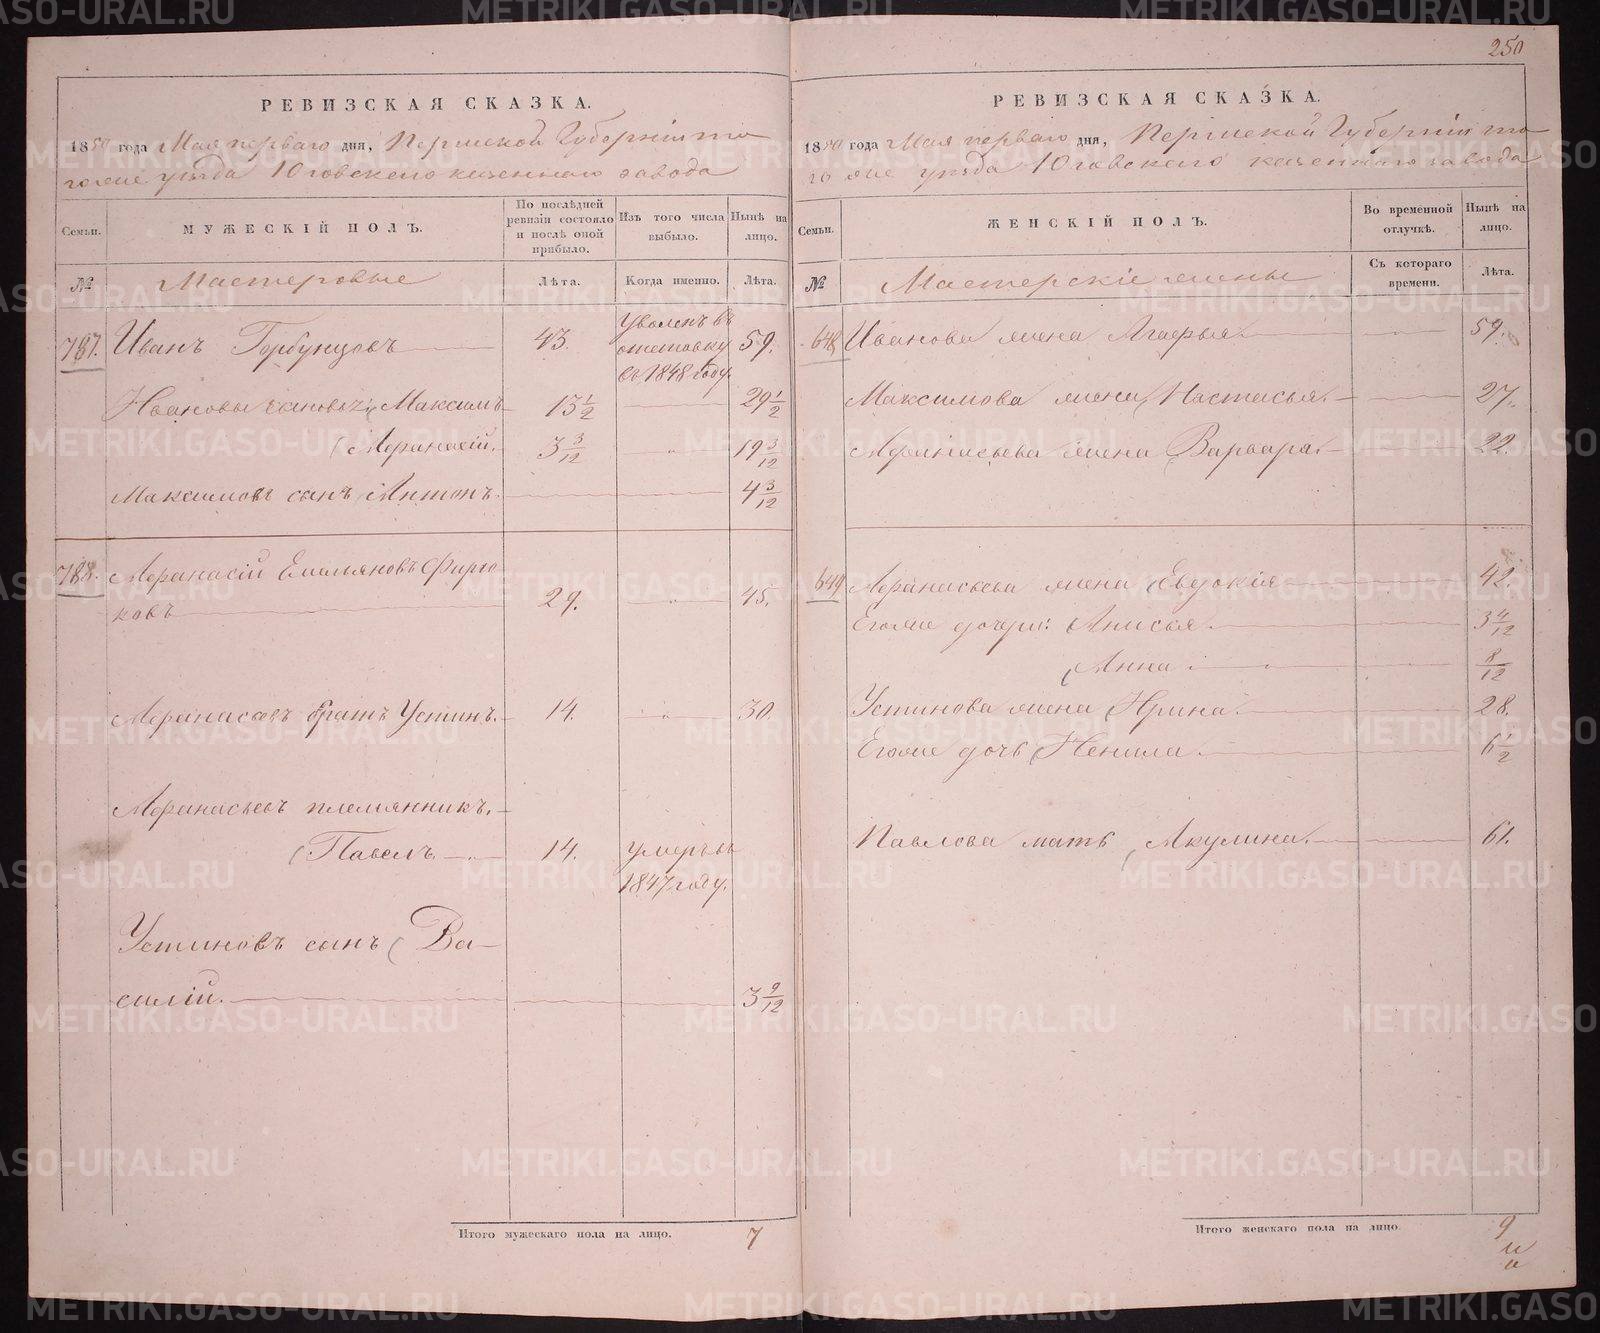 250
РЕВИЗСКАЯ СКАЗКА.
1850 года Мая перваго дня, Пермской Губерніи то
гоже уѣзда Юговскаго казеннаго завода
Семьи.
МУЖЕСКІЙ ПОЛЪ.
По послѣдней ревизіи состояло и послѣ оной прибыло.
Изъ того числа выбыло.
Нынѣ на лицо.
№
Мастеровые
Лѣта.
Когда именно.
Лѣта.
787. Иванъ Горбунцовъ 43. Уволенъ въ отставку въ 1848 году. 59.
Ивановы сыновья Максимъ 13 1/2 29 1/2
Афанасій. 3 3/12 „ 19 3/12
Максимовъ сынъ Антонъ. 4 3/12
788. Афанасій Емельяновъ
ковъ 29. „ 45.
Афанасьевъ братъ Устинъ. 14. „ 30.
Афанасьевъ племянникъ.
Павелъ 14. умеръ въ 1847 году.
Устиновъ сынъ Ва-
силій. 3 9/12
Итого мужескаго пола на лицо. 7
РЕВИЗСКАЯ СКАЗКА.
1850 года Мая перваго дня, Пермской Губерніи то
го же уѣзда Юговскаго казеннаго завода
Семьи.
ЖЕНСКІЙ ПОЛЪ.
Во временной отлучкѣ.
Нынѣ на лицо.
№
Мастерскіе жены
Съ котораго времени.
Лѣта.
648 Иванова жена Агафья. 59.
Максимова жена Настасья. 27.
Афанасьева жена Варвара. 22.
649 Афанасьева жена Евдокія 42.
Егоже дочери: Анисья. 3 4/12
Анна. 8/12
Устинова жена Ирина. 28.
Егоже дочь Ненила. 6 1/2
Павлова мать Акулина. 61.
Итого женскаго пола на лицо. 9
METRIKI.GASO-URAL.RU